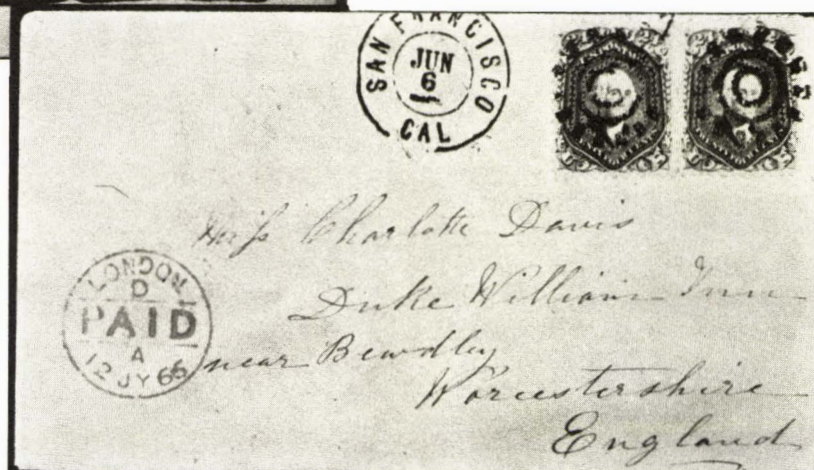 SAN FRANCISCO
JUN
6
CAL
Miss Charlotte Davis
Duke William Inn
near Bewdley
Worcestershire
England
LONDON
D
PAID
A
12 JY 65